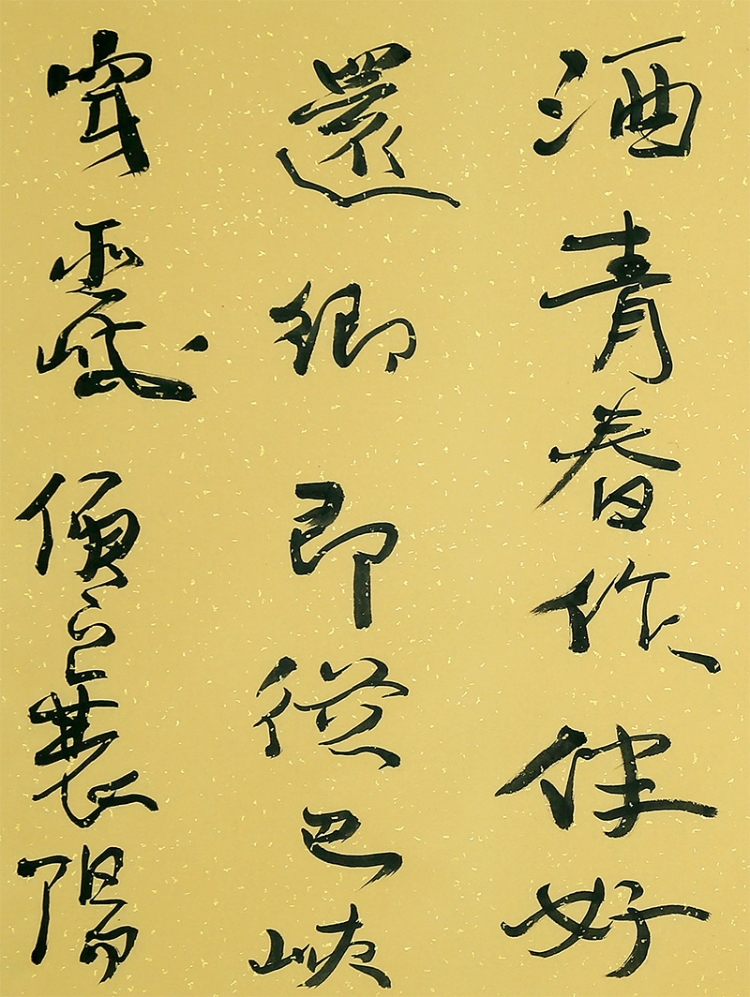 酒青春作伴好
還鄉即從巴峽
穿巫峽便下襄陽